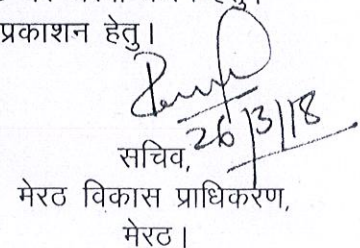 प्रकाशन हेतु।
26/3/18
सचिव,
मेरठ विकास प्राधिकरण,
मेरठ।